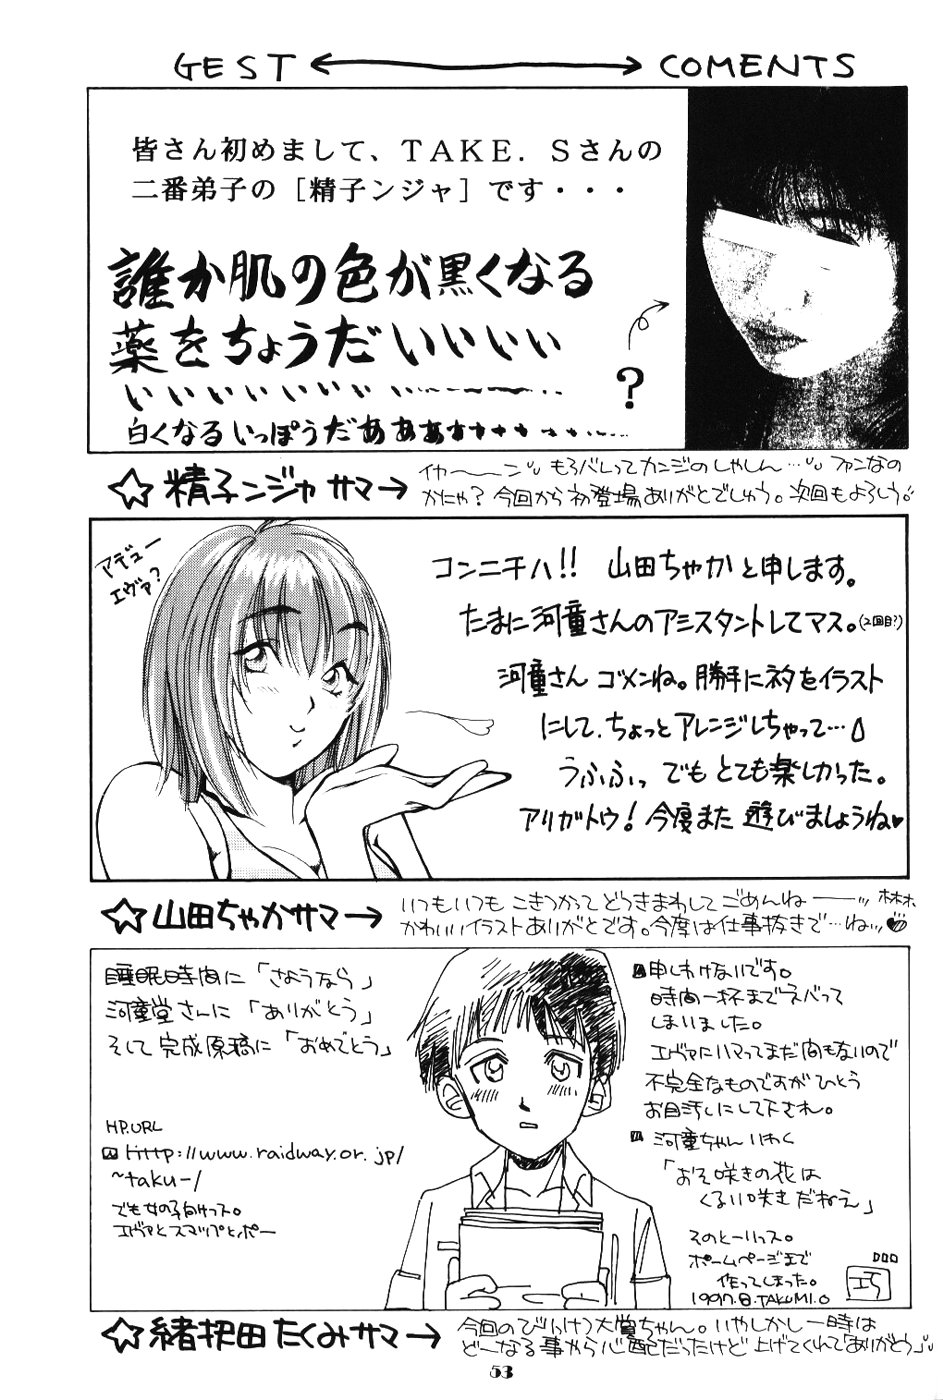 GEST ←→ COMENTS
皆さん初めまして、TAKE．Sさんの
二番弟子の［精子ンジャ］です・・・
誰か肌の色が黒くなる
薬をちょうだいいいい
いいいいいいいい
白くなるいっぽうだあああぁ
?
☆精子ンジャサマ→
イヤ〜〜ン もろバレってカンジのしゃしん… ファンなの
かにゃ？今回から初登場ありがとでしゅう。次回もよろしう!
アデュー
エヴァ？
コンニチハ!! 山田ちゃかと申します。
たまに河童さんのアシスタントしてマス。(2回目?)
河童さん ゴメンね。勝手にネタをイラスト
にして、ちょっとアレンジしちゃって…
うふふっ でもとても楽しかった。
アリガトウ！今度また遊びましょうね♥
☆山田ちゃかサマ→
いつもいつもこきつかってどうきまわしてごめんねーッ
かわいいイラストありがとです。今度は仕事抜きで…ねッ
睡眠時間に「さようなら」
河童堂さんに「ありがとう」
そして完成原稿に「おめでとう」
HP.URL
http://www.raidway.or.jp/
~taku-/
でも女の子向けっス。
エヴァとスマップとポー
申しわけないです。
時間一杯までネバって
しまいました。
エヴァにハマってまだ間もないので
不完全なものですがひとう
お目汚しにして下され。
河童ちゃんいわく
「おそ咲きの花は
くるい咲きだねえ」
そのとーりっス。
ホームページまで
作ってしまった。
1997.8.TAKUMI.O
☆緒把田たくみサマ→
今回のびりけつ大賞ちゃん。いやしかし一時は
どーなる事やら心配だったけど上げてくれて「ありがとう」
53